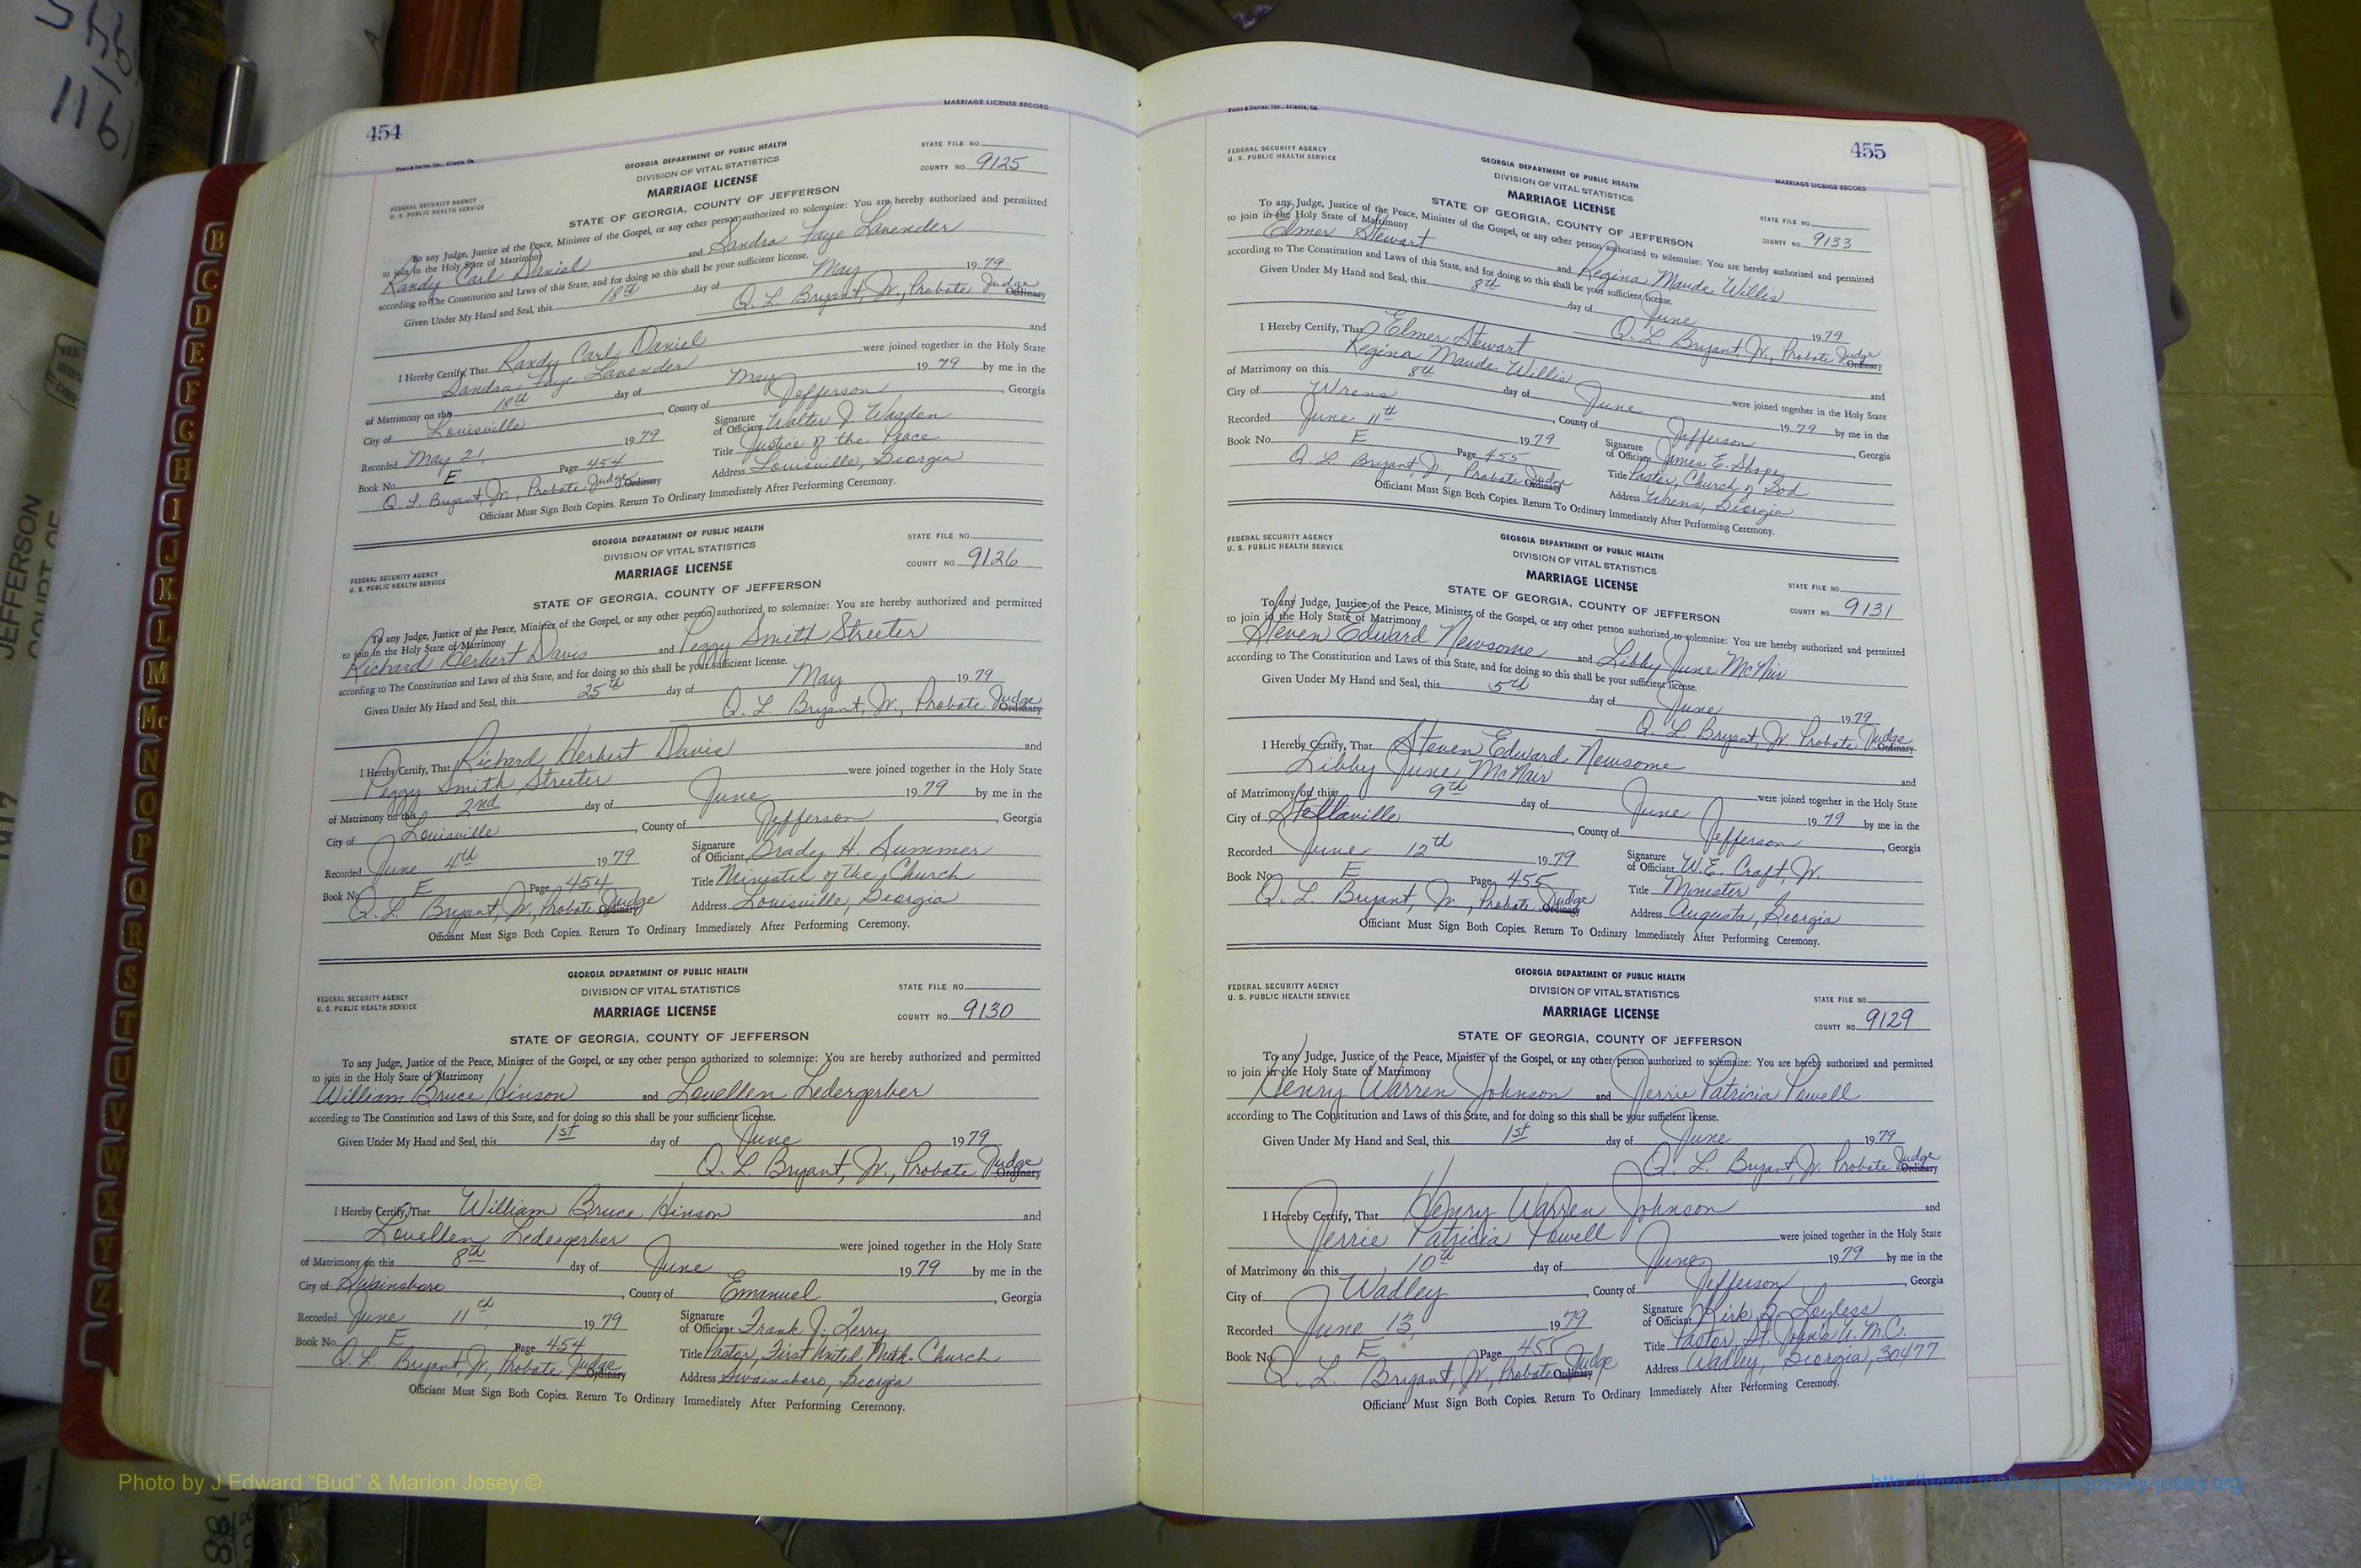 454
MARRIAGE LICENSE RECORD
GEORGIA DEPARTMENT OF PUBLIC HEALTH
DIVISION OF VITAL STATISTICS
MARRIAGE LICENSE
STATE FILE NO.
COUNTY NO. 9125
FEDERAL SECURITY AGENCY
U. S. PUBLIC HEALTH SERVICE
STATE OF GEORGIA, COUNTY OF JEFFERSON
To any Judge, Justice of the Peace, Minister of the Gospel, or any other person authorized to solemnize: You are hereby authorized and permitted
to join in the Holy State of Matrimony
Randy Carl Daniel and Sandra Faye Lavender
according to The Constitution and Laws of this State, and for doing so this shall be your sufficient license.
Given Under My Hand and Seal, this 18th day of May 1979
Q. L. Bryant, Jr., Probate Judge Ordinary
I Hereby Certify, That Randy Carl Daniel and
Sandra Faye Lavender were joined together in the Holy State
of Matrimony on this 18th day of May 1979 by me in the
City of Louisville, County of Jefferson, Georgia
Recorded May 21, 1979
Signature of Officiant Walter J Wasden
Book No. E Page 454
Title Justice of the Peace
Q. L. Bryant, Jr., Probate Judge Ordinary
Address Louisville, Georgia
Officiant Must Sign Both Copies. Return To Ordinary Immediately After Performing Ceremony.
GEORGIA DEPARTMENT OF PUBLIC HEALTH
DIVISION OF VITAL STATISTICS
MARRIAGE LICENSE
STATE FILE NO.
COUNTY NO. 9126
FEDERAL SECURITY AGENCY
U. S. PUBLIC HEALTH SERVICE
STATE OF GEORGIA, COUNTY OF JEFFERSON
To any Judge, Justice of the Peace, Minister of the Gospel, or any other person authorized to solemnize: You are hereby authorized and permitted
to join in the Holy State of Matrimony
Richard Herbert Davis and Peggy Smith Streeter
according to The Constitution and Laws of this State, and for doing so this shall be your sufficient license.
Given Under My Hand and Seal, this 25th day of May 1979
Q. L. Bryant, Jr., Probate Judge Ordinary
I Hereby Certify, That Richard Herbert Davis and
Peggy Smith Streeter were joined together in the Holy State
of Matrimony on this 2nd day of June 1979 by me in the
City of Louisville, County of Jefferson, Georgia
Recorded June 4th 1979
Signature of Officiant Grady H. Summer
Book No. E Page 454
Title Minister of the Church
Q. L. Bryant, Jr., Probate Judge Ordinary
Address Louisville, Georgia
Officiant Must Sign Both Copies. Return To Ordinary Immediately After Performing Ceremony.
GEORGIA DEPARTMENT OF PUBLIC HEALTH
DIVISION OF VITAL STATISTICS
MARRIAGE LICENSE
STATE FILE NO.
COUNTY NO. 9130
FEDERAL SECURITY AGENCY
U. S. PUBLIC HEALTH SERVICE
STATE OF GEORGIA, COUNTY OF JEFFERSON
To any Judge, Justice of the Peace, Minister of the Gospel, or any other person authorized to solemnize: You are hereby authorized and permitted
to join in the Holy State of Matrimony
William Bruce Hinson and Louellen Ledergerber
according to The Constitution and Laws of this State, and for doing so this shall be your sufficient license.
Given Under My Hand and Seal, this 1st day of June 1979
Q. L. Bryant, Jr., Probate Judge Ordinary
I Hereby Certify, That William Bruce Hinson and
Louellen Ledergerber were joined together in the Holy State
of Matrimony on this 8th day of June 1979 by me in the
City of Swainsboro, County of Emanuel, Georgia
Recorded June 11th, 1979
Signature of Officiant Frank J. Terry
Book No. E Page 454
Title Pastor, First United Meth. Church
Q. L. Bryant, Jr., Probate Judge Ordinary
Address Swainsboro, Georgia
Officiant Must Sign Both Copies. Return To Ordinary Immediately After Performing Ceremony.
455
MARRIAGE LICENSE RECORD
FEDERAL SECURITY AGENCY
U. S. PUBLIC HEALTH SERVICE
GEORGIA DEPARTMENT OF PUBLIC HEALTH
DIVISION OF VITAL STATISTICS
MARRIAGE LICENSE
STATE FILE NO.
COUNTY NO. 9133
STATE OF GEORGIA, COUNTY OF JEFFERSON
To any Judge, Justice of the Peace, Minister of the Gospel, or any other person authorized to solemnize: You are hereby authorized and permitted
to join in the Holy State of Matrimony
Elmer Stewart and Regina Maude Willis
according to The Constitution and Laws of this State, and for doing so this shall be your sufficient license.
Given Under My Hand and Seal, this 8th day of June 1979
Q. L. Bryant, Jr., Probate Judge Ordinary
I Hereby Certify, That Elmer Stewart and
Regina Maude Willis were joined together in the Holy State
of Matrimony on this 8th day of June 1979 by me in the
City of Wrens, County of Jefferson, Georgia
Recorded June 11th 1979
Signature of Officiant James E. Shope
Book No. E Page 455
Title Pastor, Church of God
Q. L. Bryant, Jr., Probate Judge Ordinary
Address Wrens, Georgia
Officiant Must Sign Both Copies. Return To Ordinary Immediately After Performing Ceremony.
FEDERAL SECURITY AGENCY
U. S. PUBLIC HEALTH SERVICE
GEORGIA DEPARTMENT OF PUBLIC HEALTH
DIVISION OF VITAL STATISTICS
MARRIAGE LICENSE
STATE FILE NO.
COUNTY NO. 9131
STATE OF GEORGIA, COUNTY OF JEFFERSON
To any Judge, Justice of the Peace, Minister of the Gospel, or any other person authorized to solemnize: You are hereby authorized and permitted
to join in the Holy State of Matrimony
Steven Edward Newsome and Libby June McNair
according to The Constitution and Laws of this State, and for doing so this shall be your sufficient license.
Given Under My Hand and Seal, this 5th day of June 1979
Q. L. Bryant, Jr. Probate Judge Ordinary
I Hereby Certify, That Steven Edward Newsome and
Libby June McNair were joined together in the Holy State
of Matrimony on this 9th day of June 1979 by me in the
City of Stellaville, County of Jefferson, Georgia
Recorded June 12th 1979
Signature of Officiant W.E. Craft, Jr.
Book No. E Page 455
Title Minister
Q. L. Bryant, Jr., Probate Judge Ordinary
Address Augusta, Georgia
Officiant Must Sign Both Copies. Return To Ordinary Immediately After Performing Ceremony.
FEDERAL SECURITY AGENCY
U. S. PUBLIC HEALTH SERVICE
GEORGIA DEPARTMENT OF PUBLIC HEALTH
DIVISION OF VITAL STATISTICS
MARRIAGE LICENSE
STATE FILE NO.
COUNTY NO. 9129
STATE OF GEORGIA, COUNTY OF JEFFERSON
To any Judge, Justice of the Peace, Minister of the Gospel, or any other person authorized to solemnize: You are hereby authorized and permitted
to join in the Holy State of Matrimony
Henry Warren Johnson and Jerrie Patricia Powell
according to The Constitution and Laws of this State, and for doing so this shall be your sufficient license.
Given Under My Hand and Seal, this 1st day of June 1979
Q. L. Bryant, Jr. Probate Judge Ordinary
I Hereby Certify, That Henry Warren Johnson and
Jerrie Patricia Powell were joined together in the Holy State
of Matrimony on this 10th day of June 1979 by me in the
City of Wadley, County of Jefferson, Georgia
Recorded June 13, 1979
Signature of Officiant Kirk D. Loyless
Book No. E Page 455
Title Pastor, St. John's U.M.C.
Q. L. Bryant, Jr., Probate Judge Ordinary
Address Wadley, Georgia, 30477
Officiant Must Sign Both Copies. Return To Ordinary Immediately After Performing Ceremony.
B
C
D
E
F
G
H
I
J
K
L
M
Mc
N
O
P
Q
R
S
T
U
V
W
X
Y
Z
JEFFERSON
COURT OF
Photo by J Edward “Bud” & Marion Josey ©